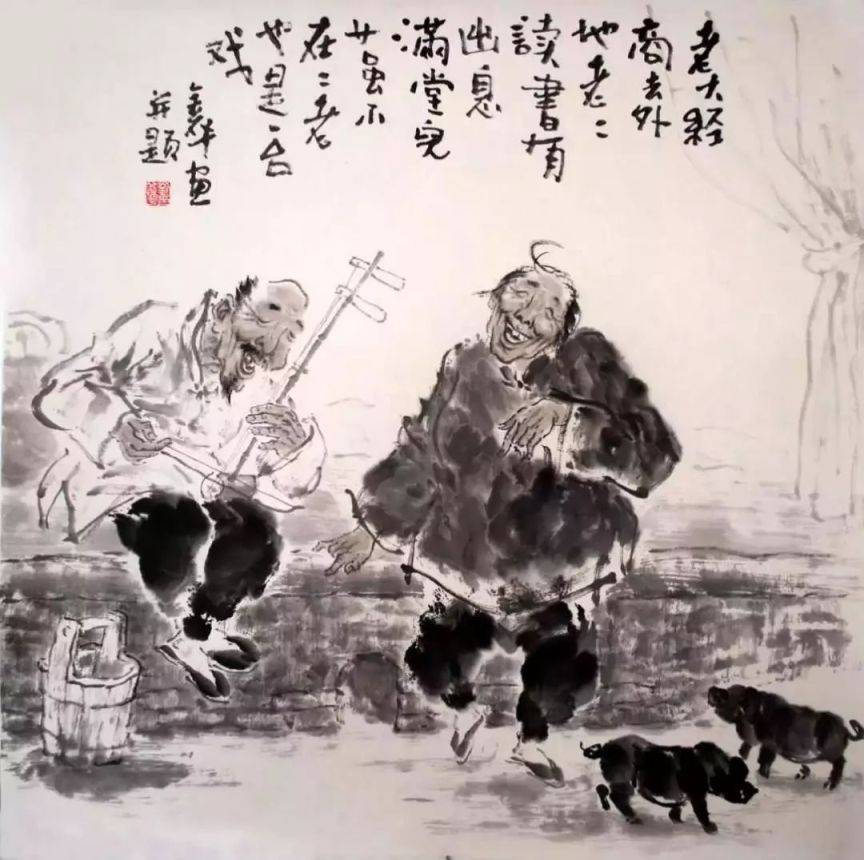 老大经
商去外
地老二
讀書有
出息
满堂兒
女虽不
在二老
也是一台
戏
华画
并题